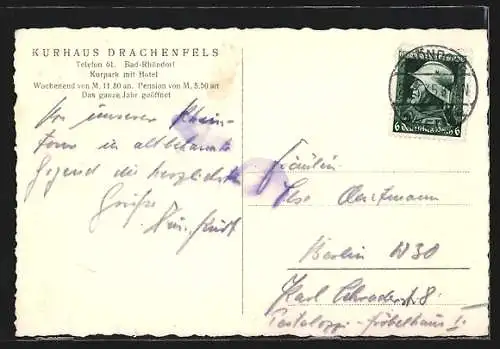 KURHAUS DRACHENFELS
Telefon 61. Bad-Rhöndorf
Kurpark mit Hotel
Wochenend von M. 11.50 an. Pension von M. 5.50 an
Das ganze Jahr geöffnet
Von unserer Rhein-
tour in altbekannte
Gegend die herzlichsten
Grüße
Fräulein
Ilse
Berlin W30
Karl Schraderstr 8
Pestalozzi-Fröbelhaus I
6 Deutsches Reich 6